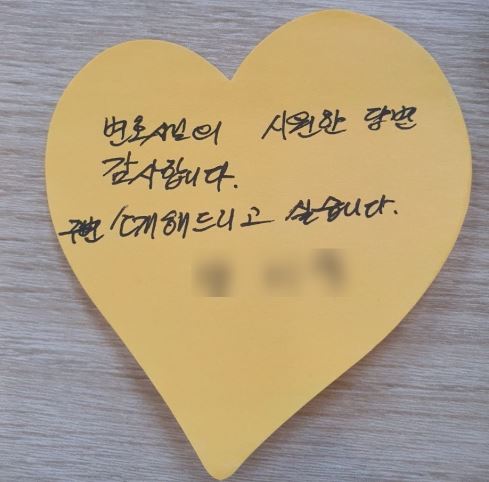 변호사님의 시원한 답변
감사합니다.
주변 소개해드리고 싶습니다.